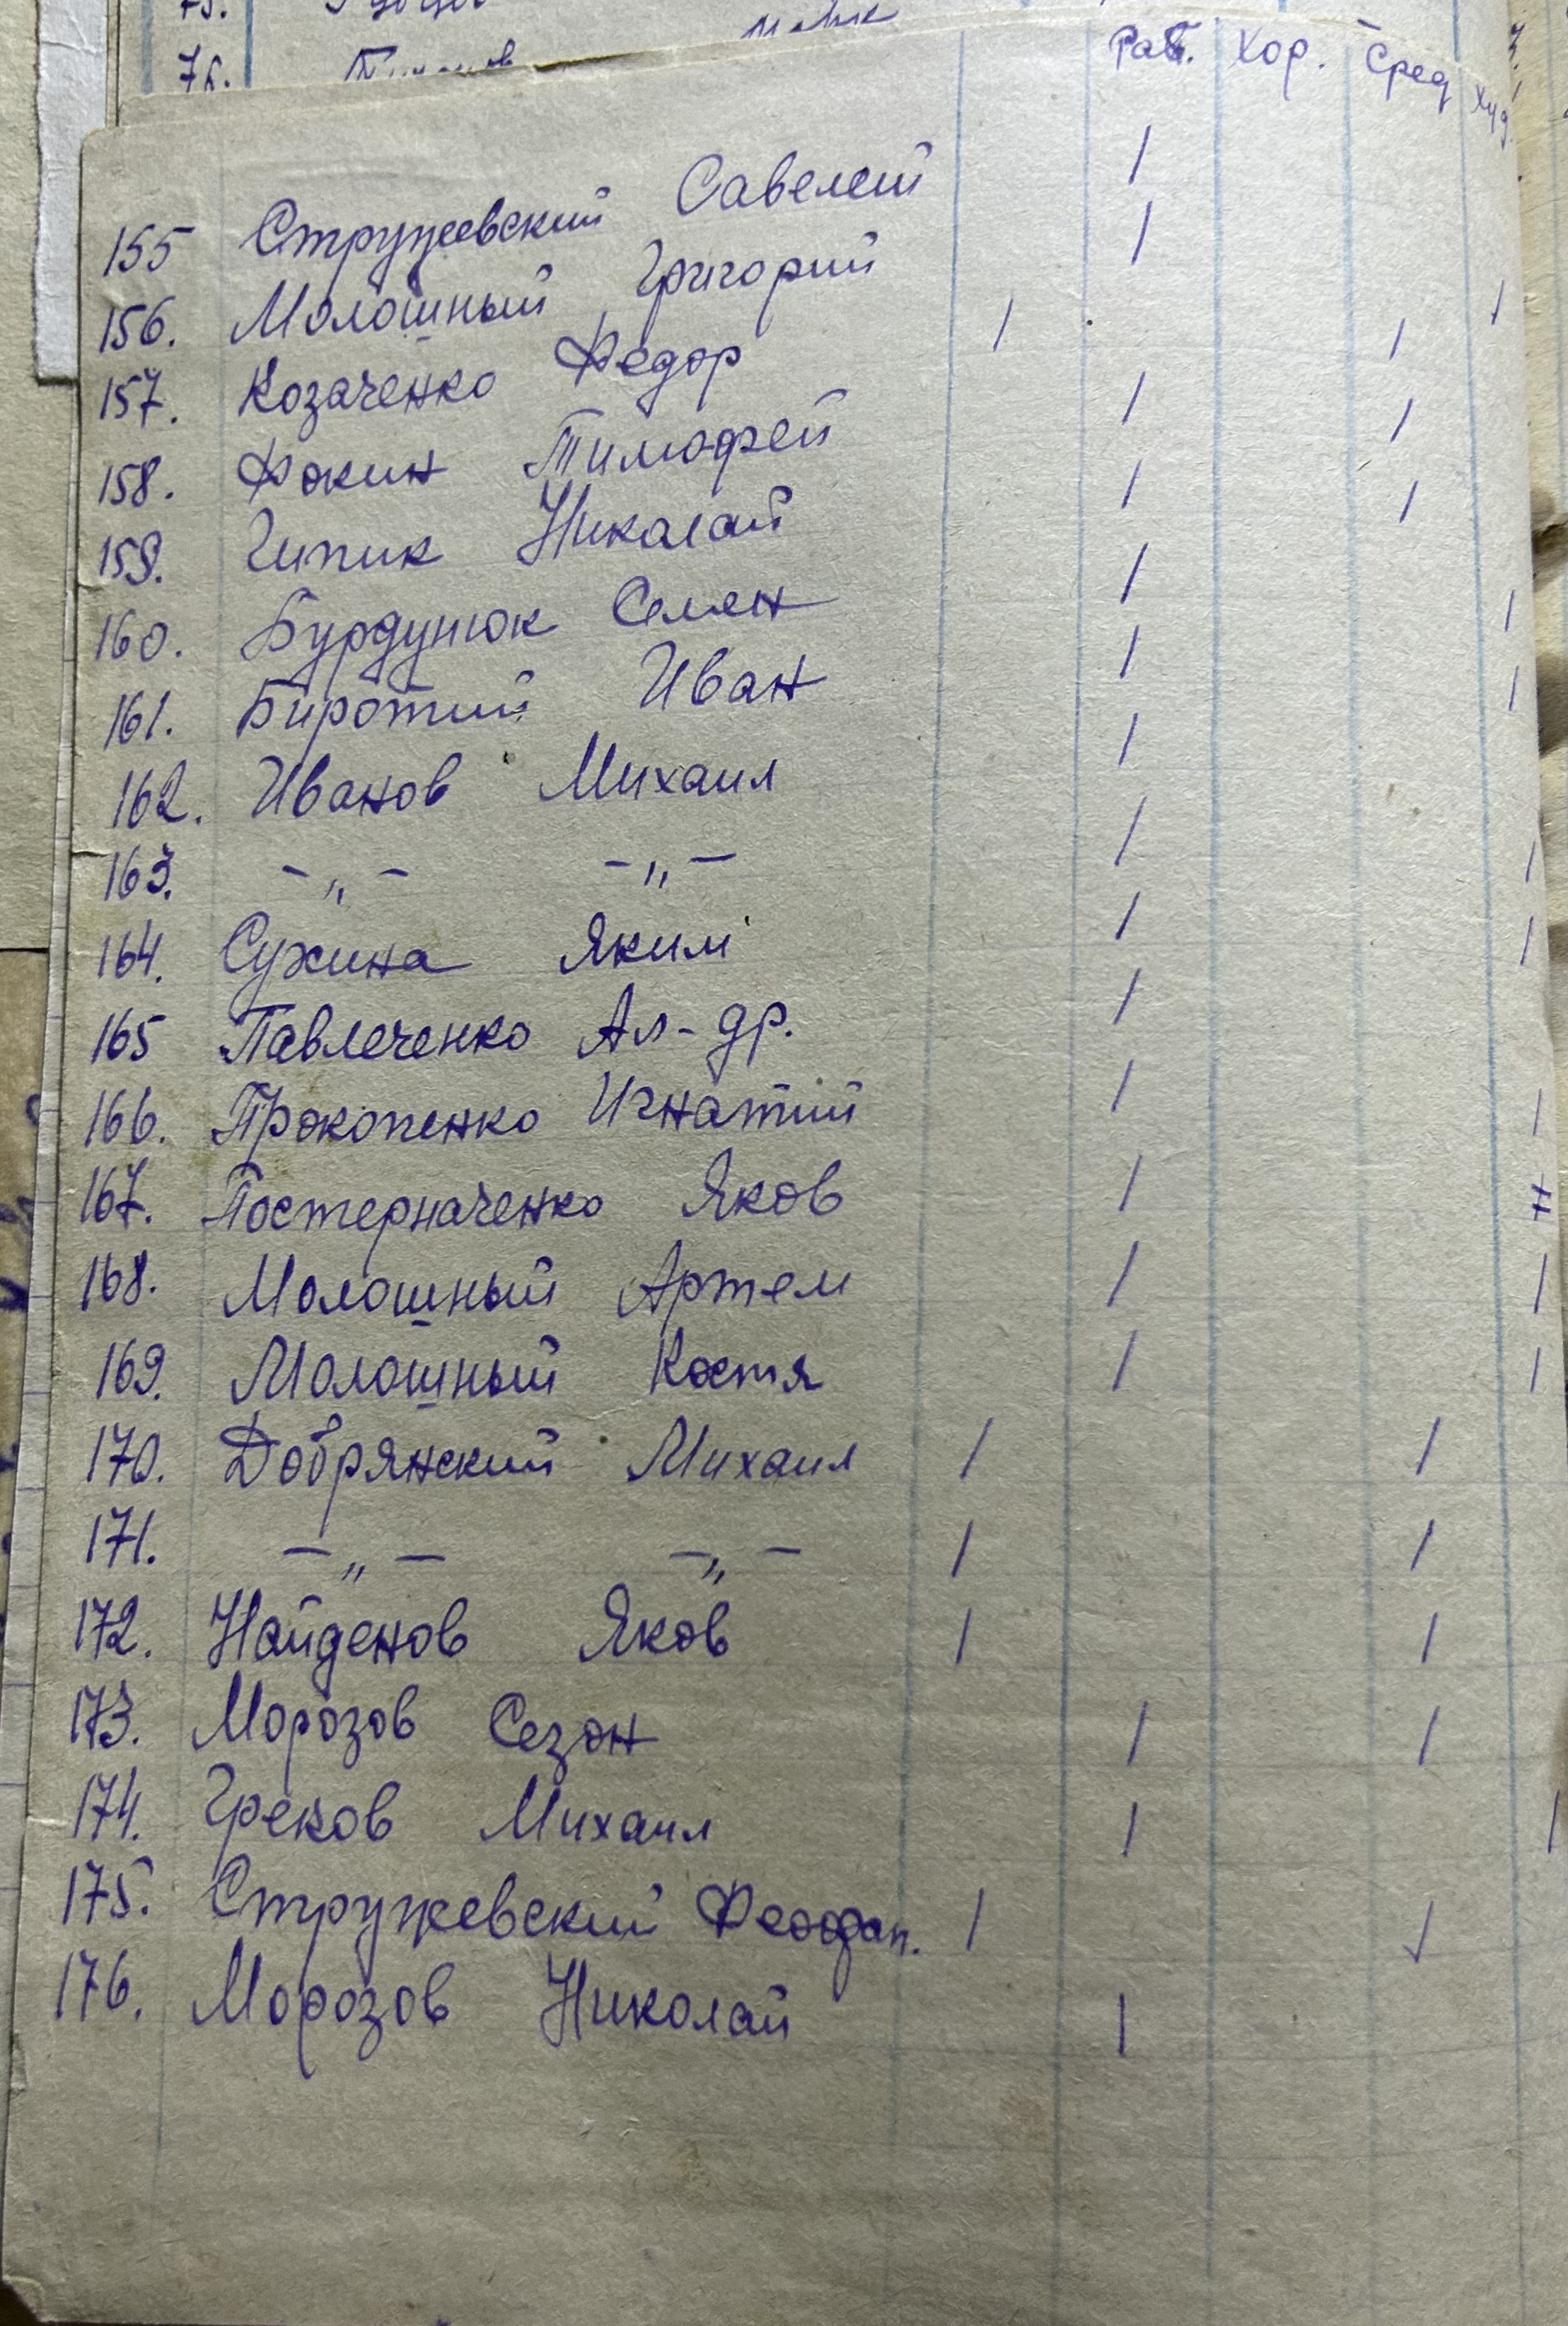 75.
76.
Раб. Хор. Сред Худ.
155 Стружевский Савелей /
156. Молошный Григорий /
157. Козаченко Федор /
158. Фокин Тимофей / /
159. Гипик Николай / /
160. Бурдунюк Семен /
161. Биротий Иван / /
162. Иванов Михаил / /
163. -„- -„- / /
164. Сухина Яким / /
165 Павлеченко Ал-др. /
166. Прокопенко Игнатий / /
167. Постерначенко Яков /
168. Молошный Артем / /
169. Молошный Костя / /
170. Добрянский Михаил / /
171. -„- -„- / /
172. Найденов Яков / /
173. Морозов Сезон / /
174. Греков Михаил / /
175. Стружевский Феофан. / /
176. Морозов Николай /